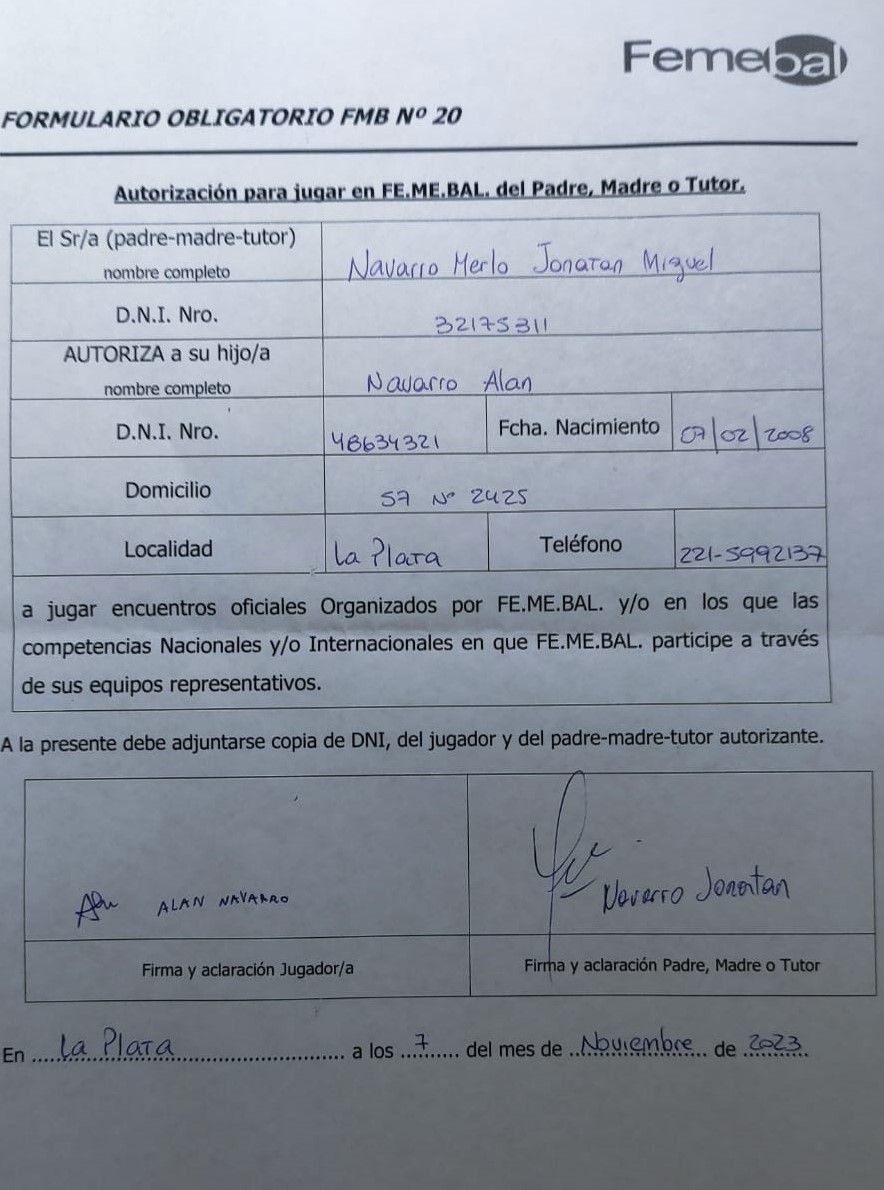 Femebal
FORMULARIO OBLIGATORIO FMB Nº 20
Autorización para jugar en FE.ME.BAL. del Padre, Madre o Tutor.
El Sr/a (padre-madre-tutor)
nombre completo
Navarro Merlo Jonatan Miguel
D.N.I. Nro.
32175311
AUTORIZA a su hijo/a
nombre completo
Navarro Alan
D.N.I. Nro.
48634321
Fcha. Nacimiento
07/02/2008
Domicilio
57 Nº 2425
Localidad
La Plata
Teléfono
221-5992137
a jugar encuentros oficiales Organizados por FE.ME.BAL. y/o en los que las
competencias Nacionales y/o Internacionales en que FE.ME.BAL. participe a través
de sus equipos representativos.
A la presente debe adjuntarse copia de DNI, del jugador y del padre-madre-tutor autorizante.
ALAN NAVARRO
Navarro Jonatan
Firma y aclaración Jugador/a
Firma y aclaración Padre, Madre o Tutor
En ..... La Plata ..... a los ... 7 ..... del mes de .. Noviembre .. de 2023